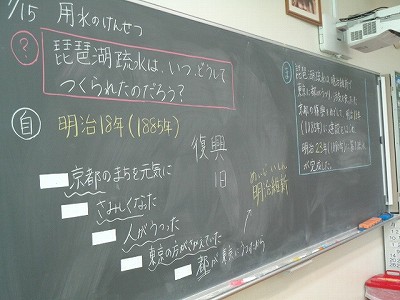 /15 用水のけんせつ
?
琵琶湖疏水は、いつ、どうして
つくられたのだろう?
自
明治18年(1885年)
京都のまちを元気に
さみしくなった
人がうつった
東京の方がさかんでいた
都が東京にうつったから
復興
旧
めいじいしん
明治維新
琵琶湖疏水は明治維新で
明治18年
(1885年)に建設
明治23年(1890年)に
が完成した。